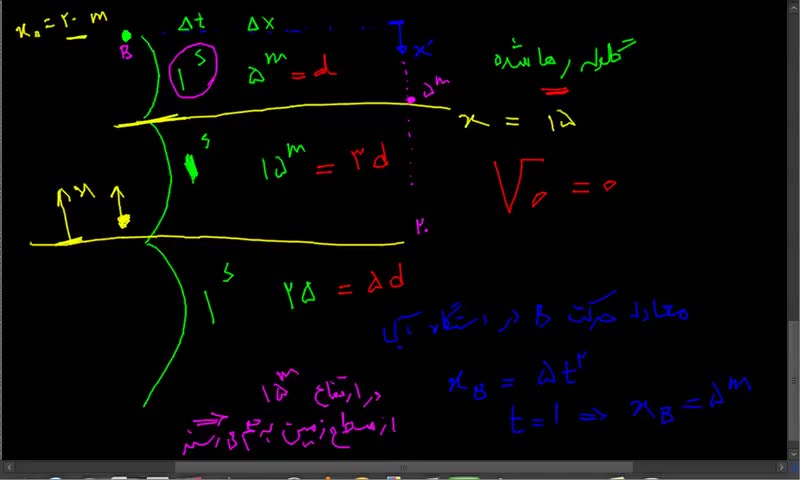 x₀ = ۲۰ m
B
Δt Δx
۱ˢ ۵ᵐ = d
x
۵ᵐ
گلوله رها شده
x = ۱۵
۱ˢ ۱۵ᵐ = ۳d
V₀ = ۰
x
۲۰
۱ˢ ۲۵ = ۵d
معادله حرکت B در دستگاه آبی
x_B = ۵t²
t = ۱ ⇒ x_B = ۵ᵐ
در ارتفاع ۱۵ᵐ
از سطح زمین به هم می‌رسند ⇒